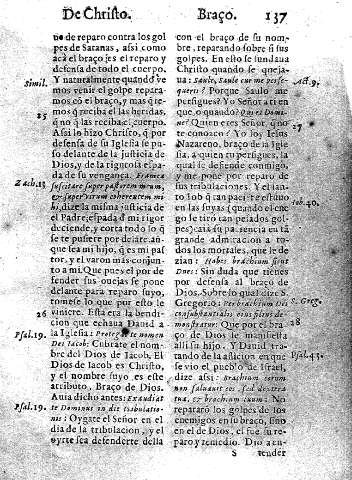 De Christo.
Braço.
137
no de reparo contra los gol
pes de Satanas, assi como
acà el braço es el reparo y
defensa de todo el cuerpo.
Y naturalmente quando ve
Simil.
mos venir el golpe reparamos
cō el braço, y mas q̄remos
q̄ reciba el las heridas,
25
q̄ no q̄ las reciba el cuerpo.
Assi lo hizo Christo, q̄ por
defensa de su Iglesia se puso
delante de la justicia de
Dios, y de la rigurosa espada
de su vengança. Framea
Zach.13
suscitare super pastorem meum,
& super virum coherentem mihi,
dize la misma justicia de
el Padre, espada d̄ mi rigor
deciende, y corta todo lo que
se te pusiere por delante, aunque
sea mi hijo, q̄ es mi pastor,
y el varon mas conjunto
a mi. Que pues el por defender
sus ouejas se pone
delante para reparo suyo,
tomese lo que por esto le
viniere. Esta era la bendicion
26
que echaua Dauid a
Psal.19.
la Iglesia: Protegat te nomen
Dei Iacob. Cubrate el nombre
del Dios de Iacob. El
Dios de Iacob es Christo,
y el nombre suyo es este
atributo, Braço de Dios.
Psal.19.
Auia dicho antes: Exaudiat
te Dominus in die tribulationis:
Oygate el Señor en el
dia de la tribulacion, y el
oyrte sea defenderte della
con el braço de su nombre,
reparando sobre si sus
golpes. En esto se fundaua
Christo quando se quejaua:
Saule, Saule cur me persequeris?
Act.9.
Porque Saulo me
persigues? Yo Señor a ti en
que o quando? Quis es Domine?
Quien eres Señor, que no
27
te conozco? Yo soy Iesus
Nazareno, braço de la Iglesia,
a quien tu persigues, la
qual se defiende conmigo,
y me pone por reparo de
sus tribulaciones. Y el santo
Iob q̄ tan paciente estuuo
Iob.40.
en las suyas (quando el enemigo
le tirò tan pesados golpes)
caìa su paciencia en tā
grande admiracion a todos
los mortales, que le dezian:
Habes brachium sicut
Deus: Sin duda que tienes
por defensa al braço de
Dios. Sobre lo qual dize S.
Gregorio: Per brachium Dei
S. Greg.
consubstantialis eius filius demonstratur:
Que por el braço
28
de Dios se manifiesta
alli su hijo. Y Dauid tratando
de la aflicion en que
Psal.43.
se vio el pueblo de Israel,
dize assi: Brachium eorum
non saluauit eos, sed dextera
tua, & brachium tuum: No
repararò los golpes de los
enemigos su braço, sino
en el de Dios, el fue su reparo
y remedio. Dio a entender
S
tender